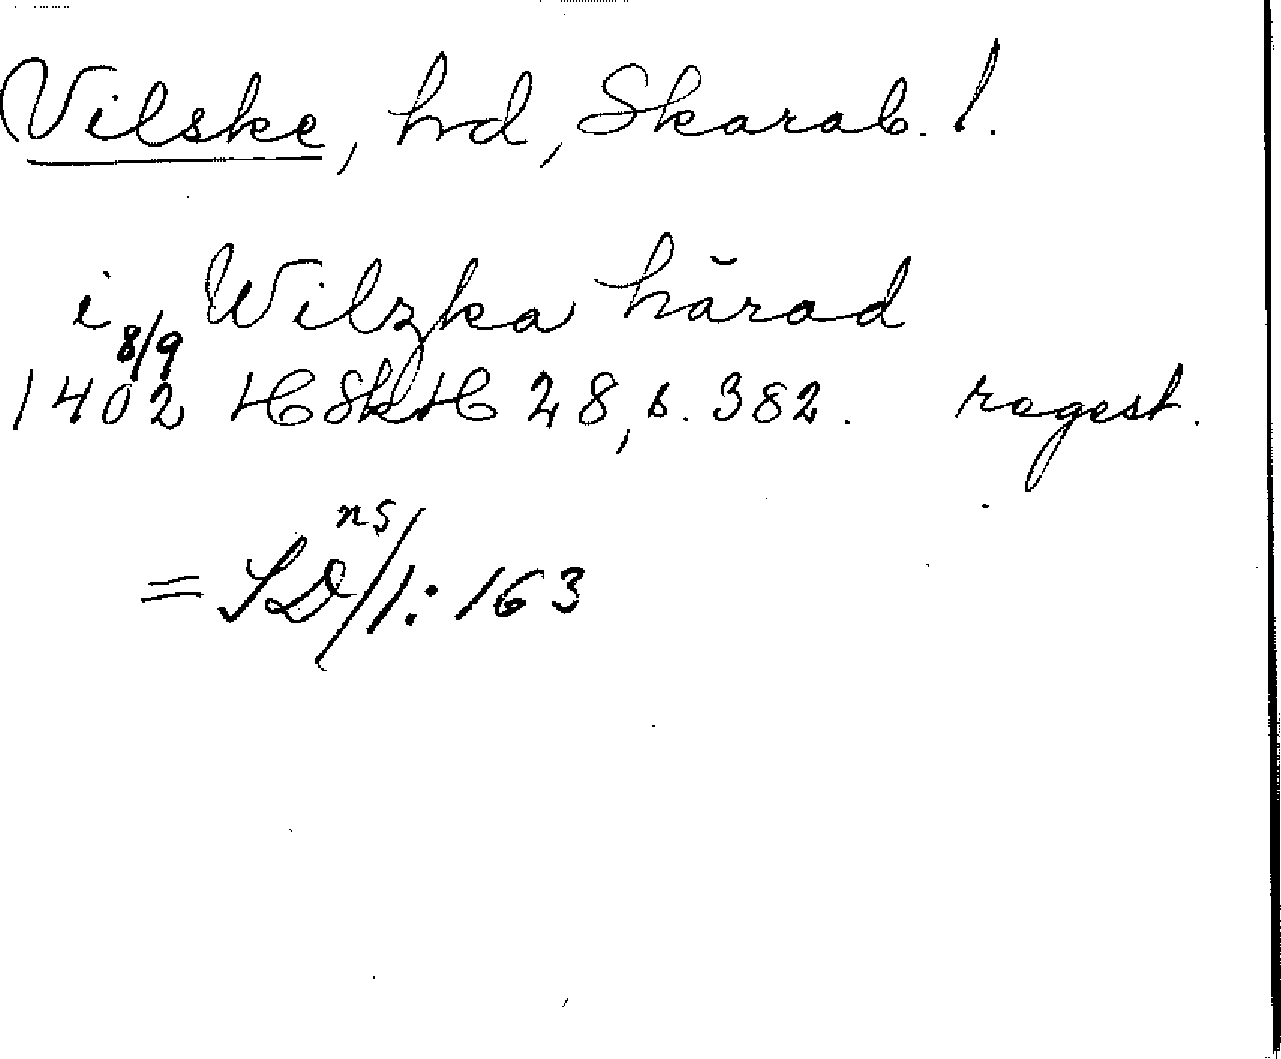 Vilske, hd, Skarab. l.
i Wilzka härad
8/9
1402 HSkH 28, s. 382. regest.
= SD ns/1: 163